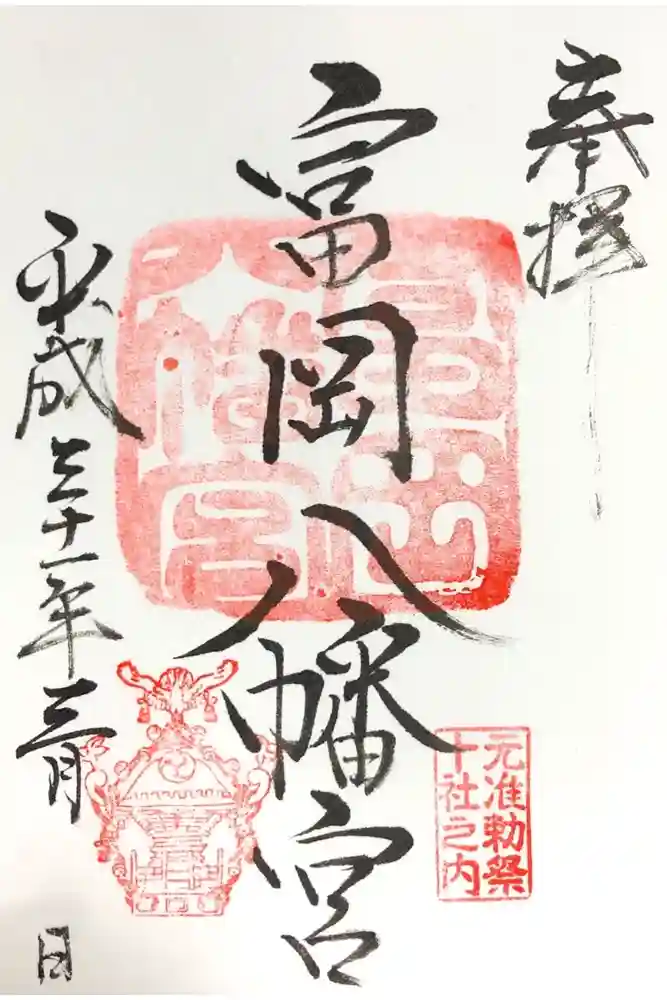 奉拝
富岡八幡宮
元准勅祭
十社之内
平成三十一年三月
日